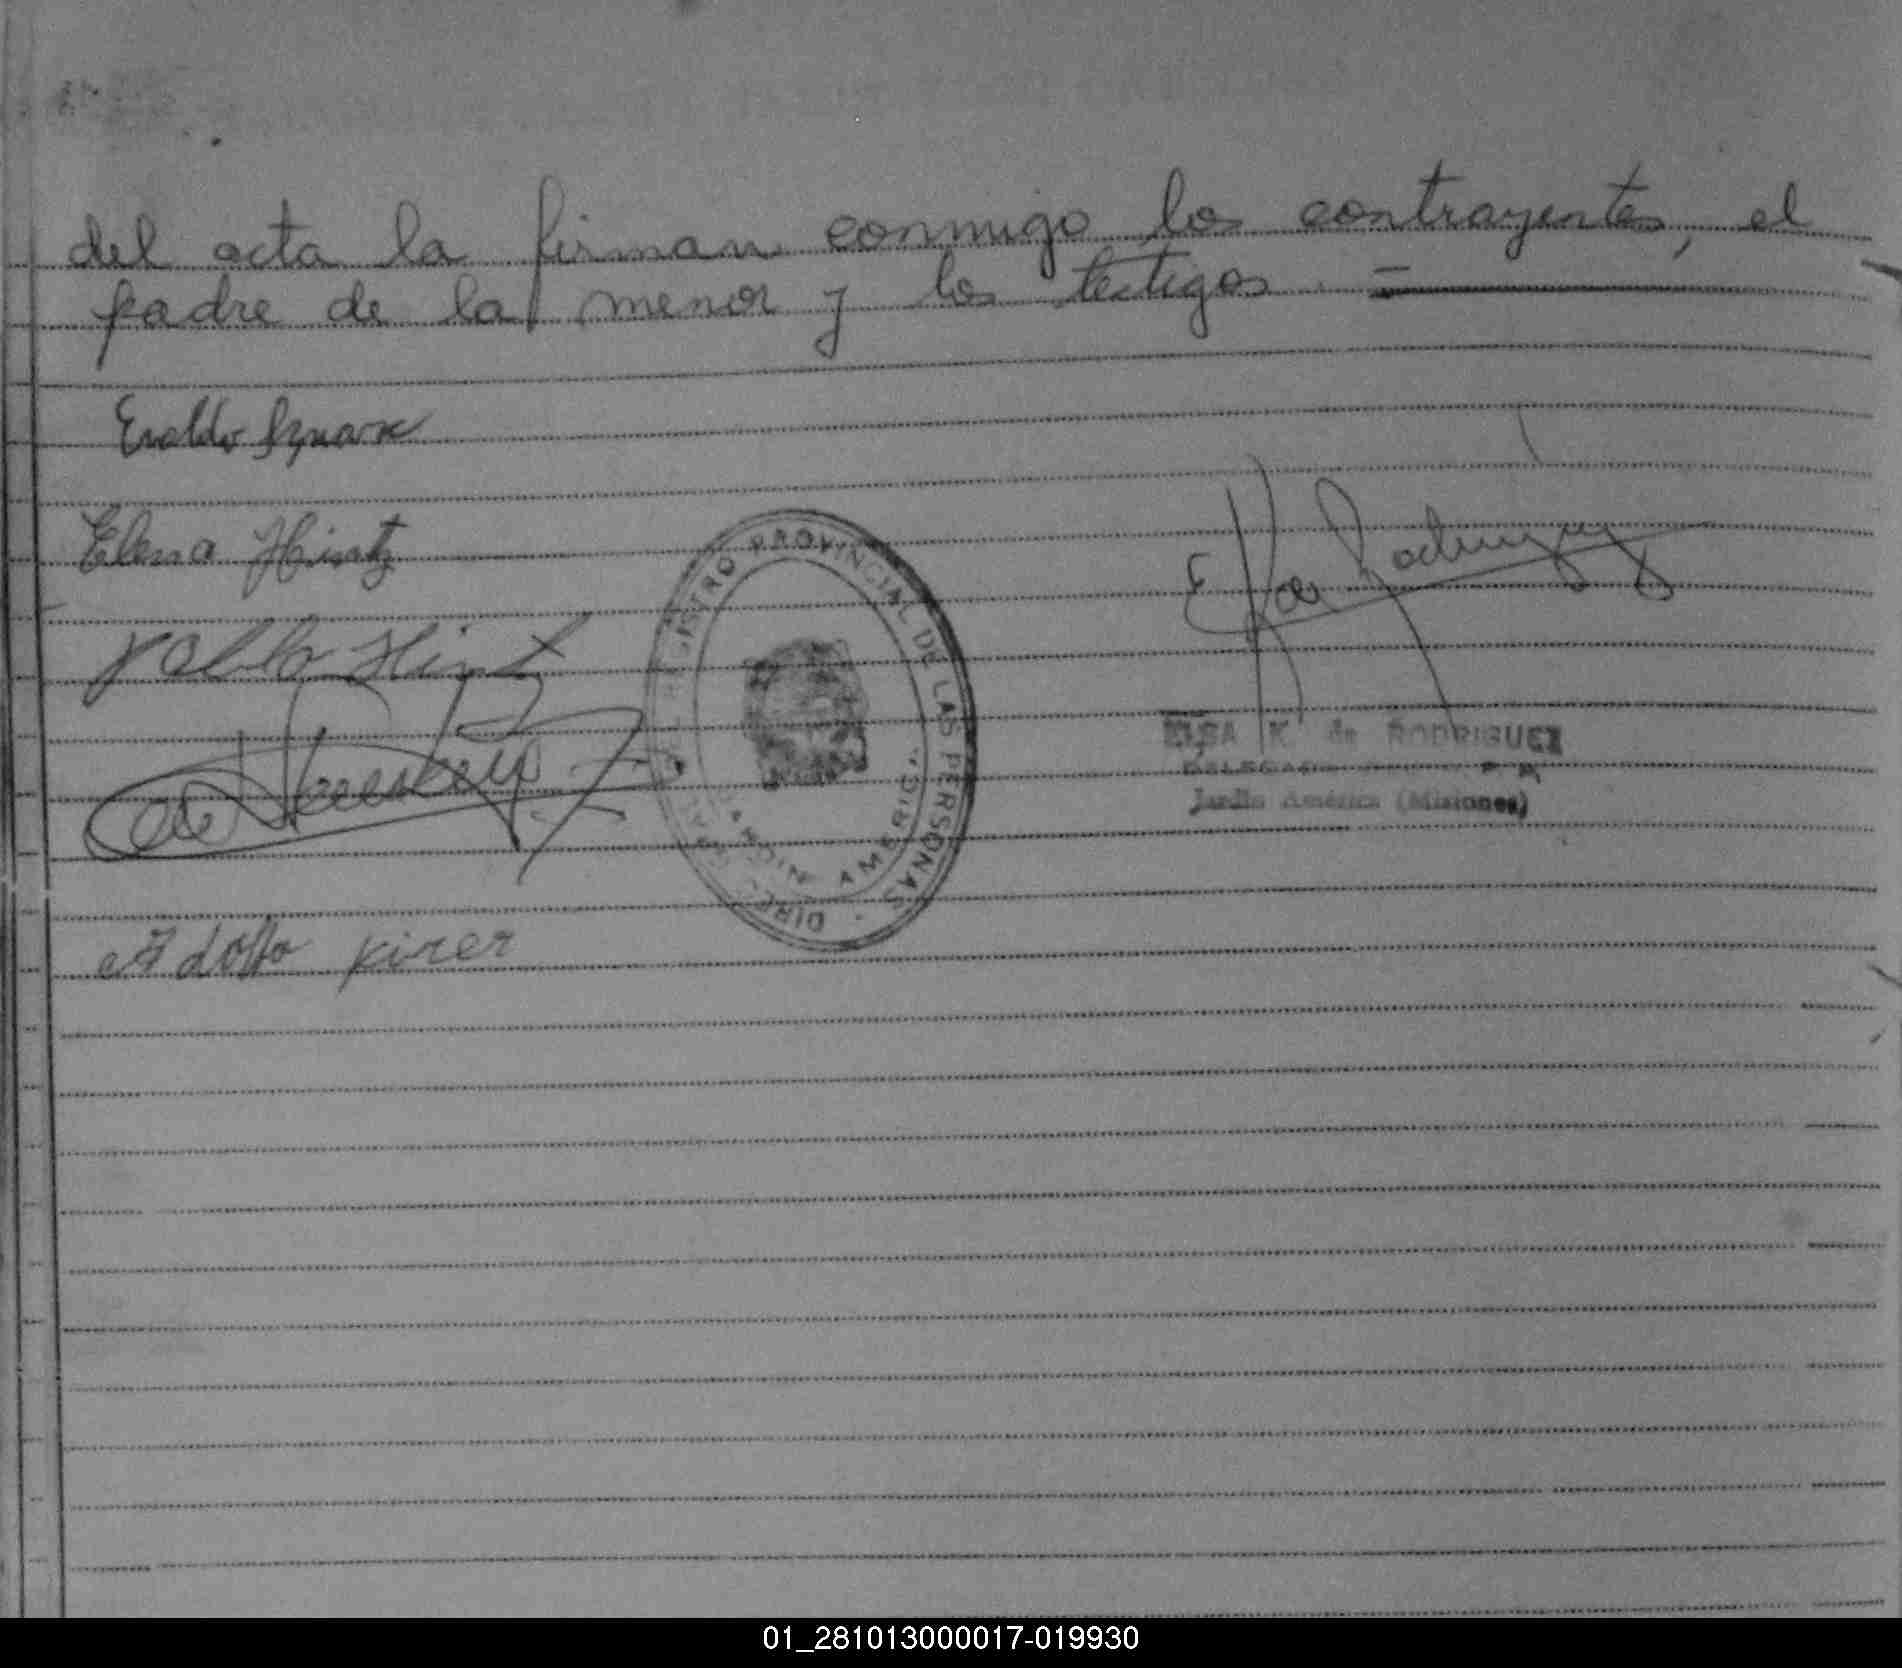 del acta la firman conmigo los contrayentes, el
padre de la menor y los testigos. =
Elena Hintz
Pablo Hintz
Adolfo Kirer
REGISTRO PROVINCIAL DE LAS PERSONAS
JARDIN AMERICA
ELSA K. de RODRIGUEZ
Jardín América (Misiones)
01_281013000017-019930